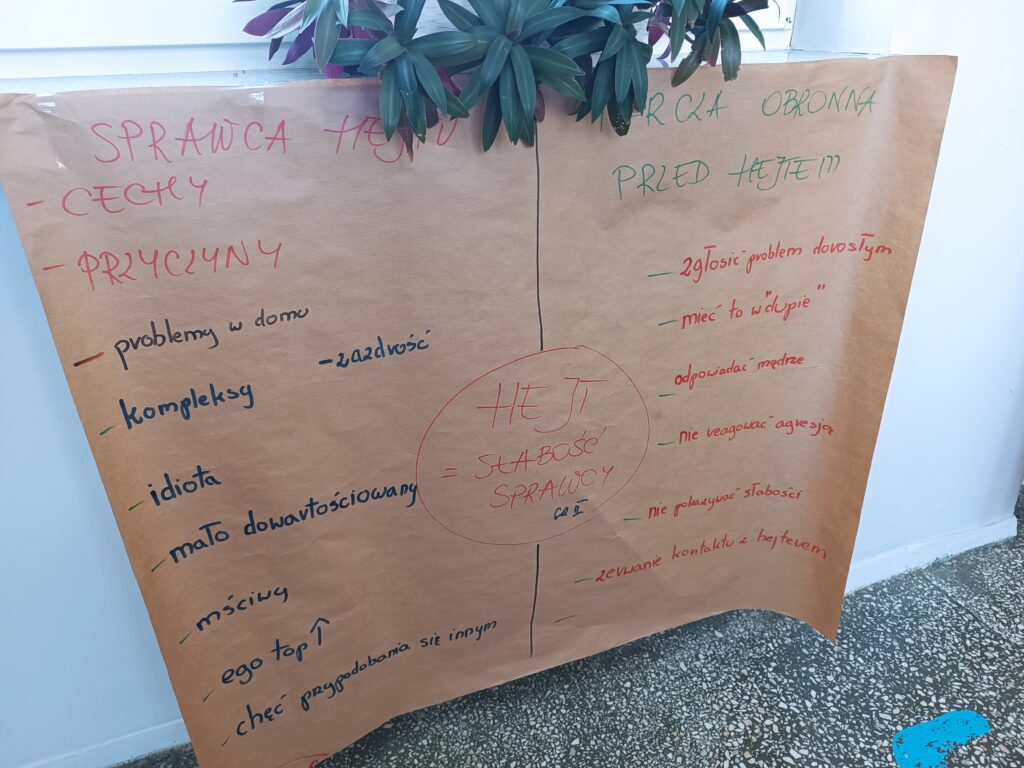 SPRAWCA HEJTU
- CECHY
- PRZYCZYNY
- problemy w domu
- zazdrość
- kompleksy
- idiota
- mało dowartościowany
- mściwy
- ego top ↑
- chęć przypodobania się innym
HEJT
= SŁABOŚĆ
SPRAWCY
TARCZA OBRONNA
PRZED HEJTEM
- zgłosić problem dorosłym
- mieć to w "dupie"
- odpowiadać mądrze
- nie reagować agresją
- nie pokazywać słabości
- zerwanie kontaktu z hejterem
-